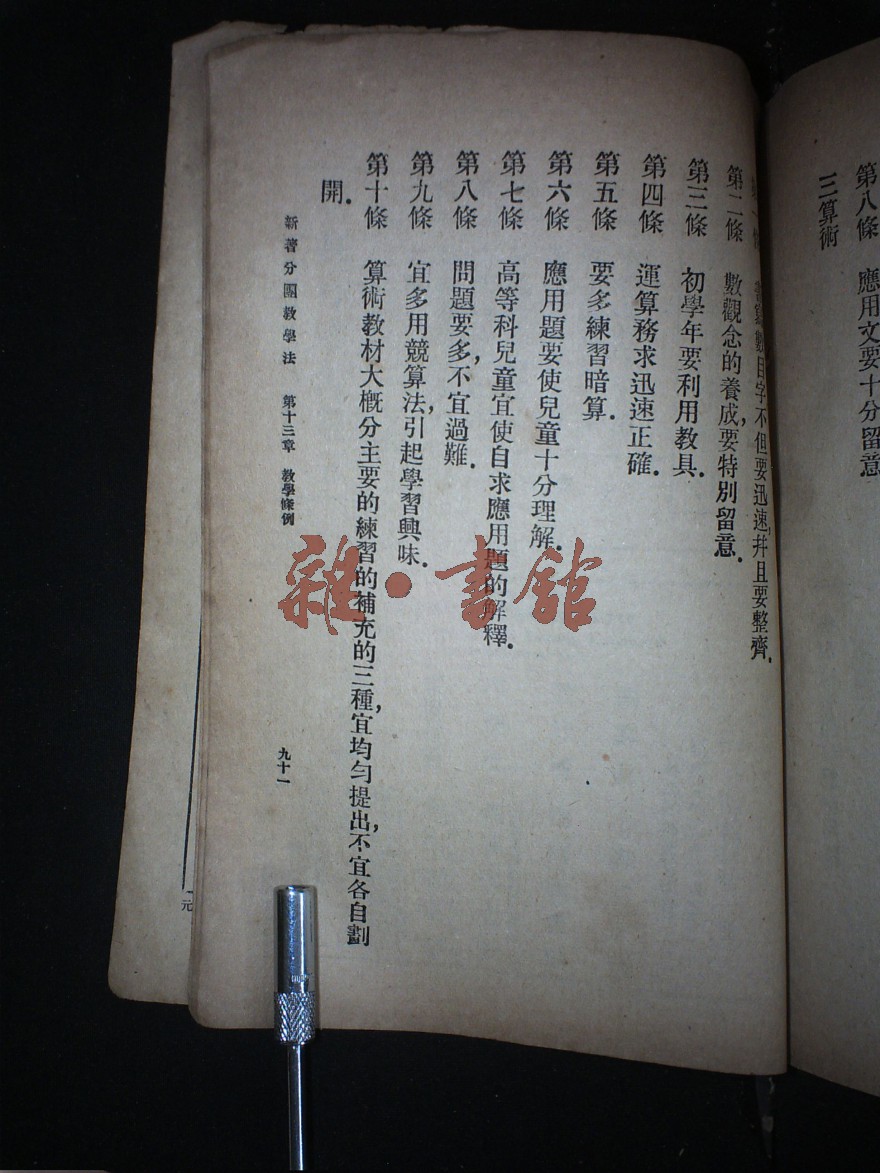 第八條　應用文要十分留意
三算術
書算數目字不但要迅速，幷且要整齊．
第二條　數觀念的養成，要特別留意．
第三條　初學年要利用教具．
第四條　運算務求迅速正確．
第五條　要多練習暗算．
第六條　應用題要使兒童十分理解．
第七條　高等科兒童宜使自求應用題的解釋．
第八條　問題要多，不宜過難．
第九條　宜多用競算法，引起學習興味．
第十條　算術教材大概分主要的練習的補充的三種，宜均勻提出，不宜各自劃
開．
新著分團教學法　第十三章　教學條例
九十一
一元
雜·書館